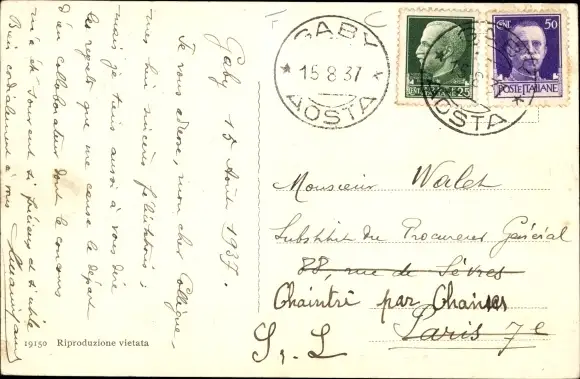 Gaby 15 Août 1937.
Je vous adresse, mon cher Collègue,
mes bien sincères félicitations ;
mais je tiens aussi à vous dire
les regrets que me cause le départ
d'un collaborateur dont le concours
m'a été souvent si précieux et si utile.
Bien cordialement à vous
19150 Riproduzione vietata
GABY
15 8 37
AOSTA
25
CENT. 50
POSTE ITALIANE
AOSTA
Monsieur Walet
Substitut du Procureur Général
88, rue de Sèvres
Chaintré par Chanes
Paris 7e
S. L